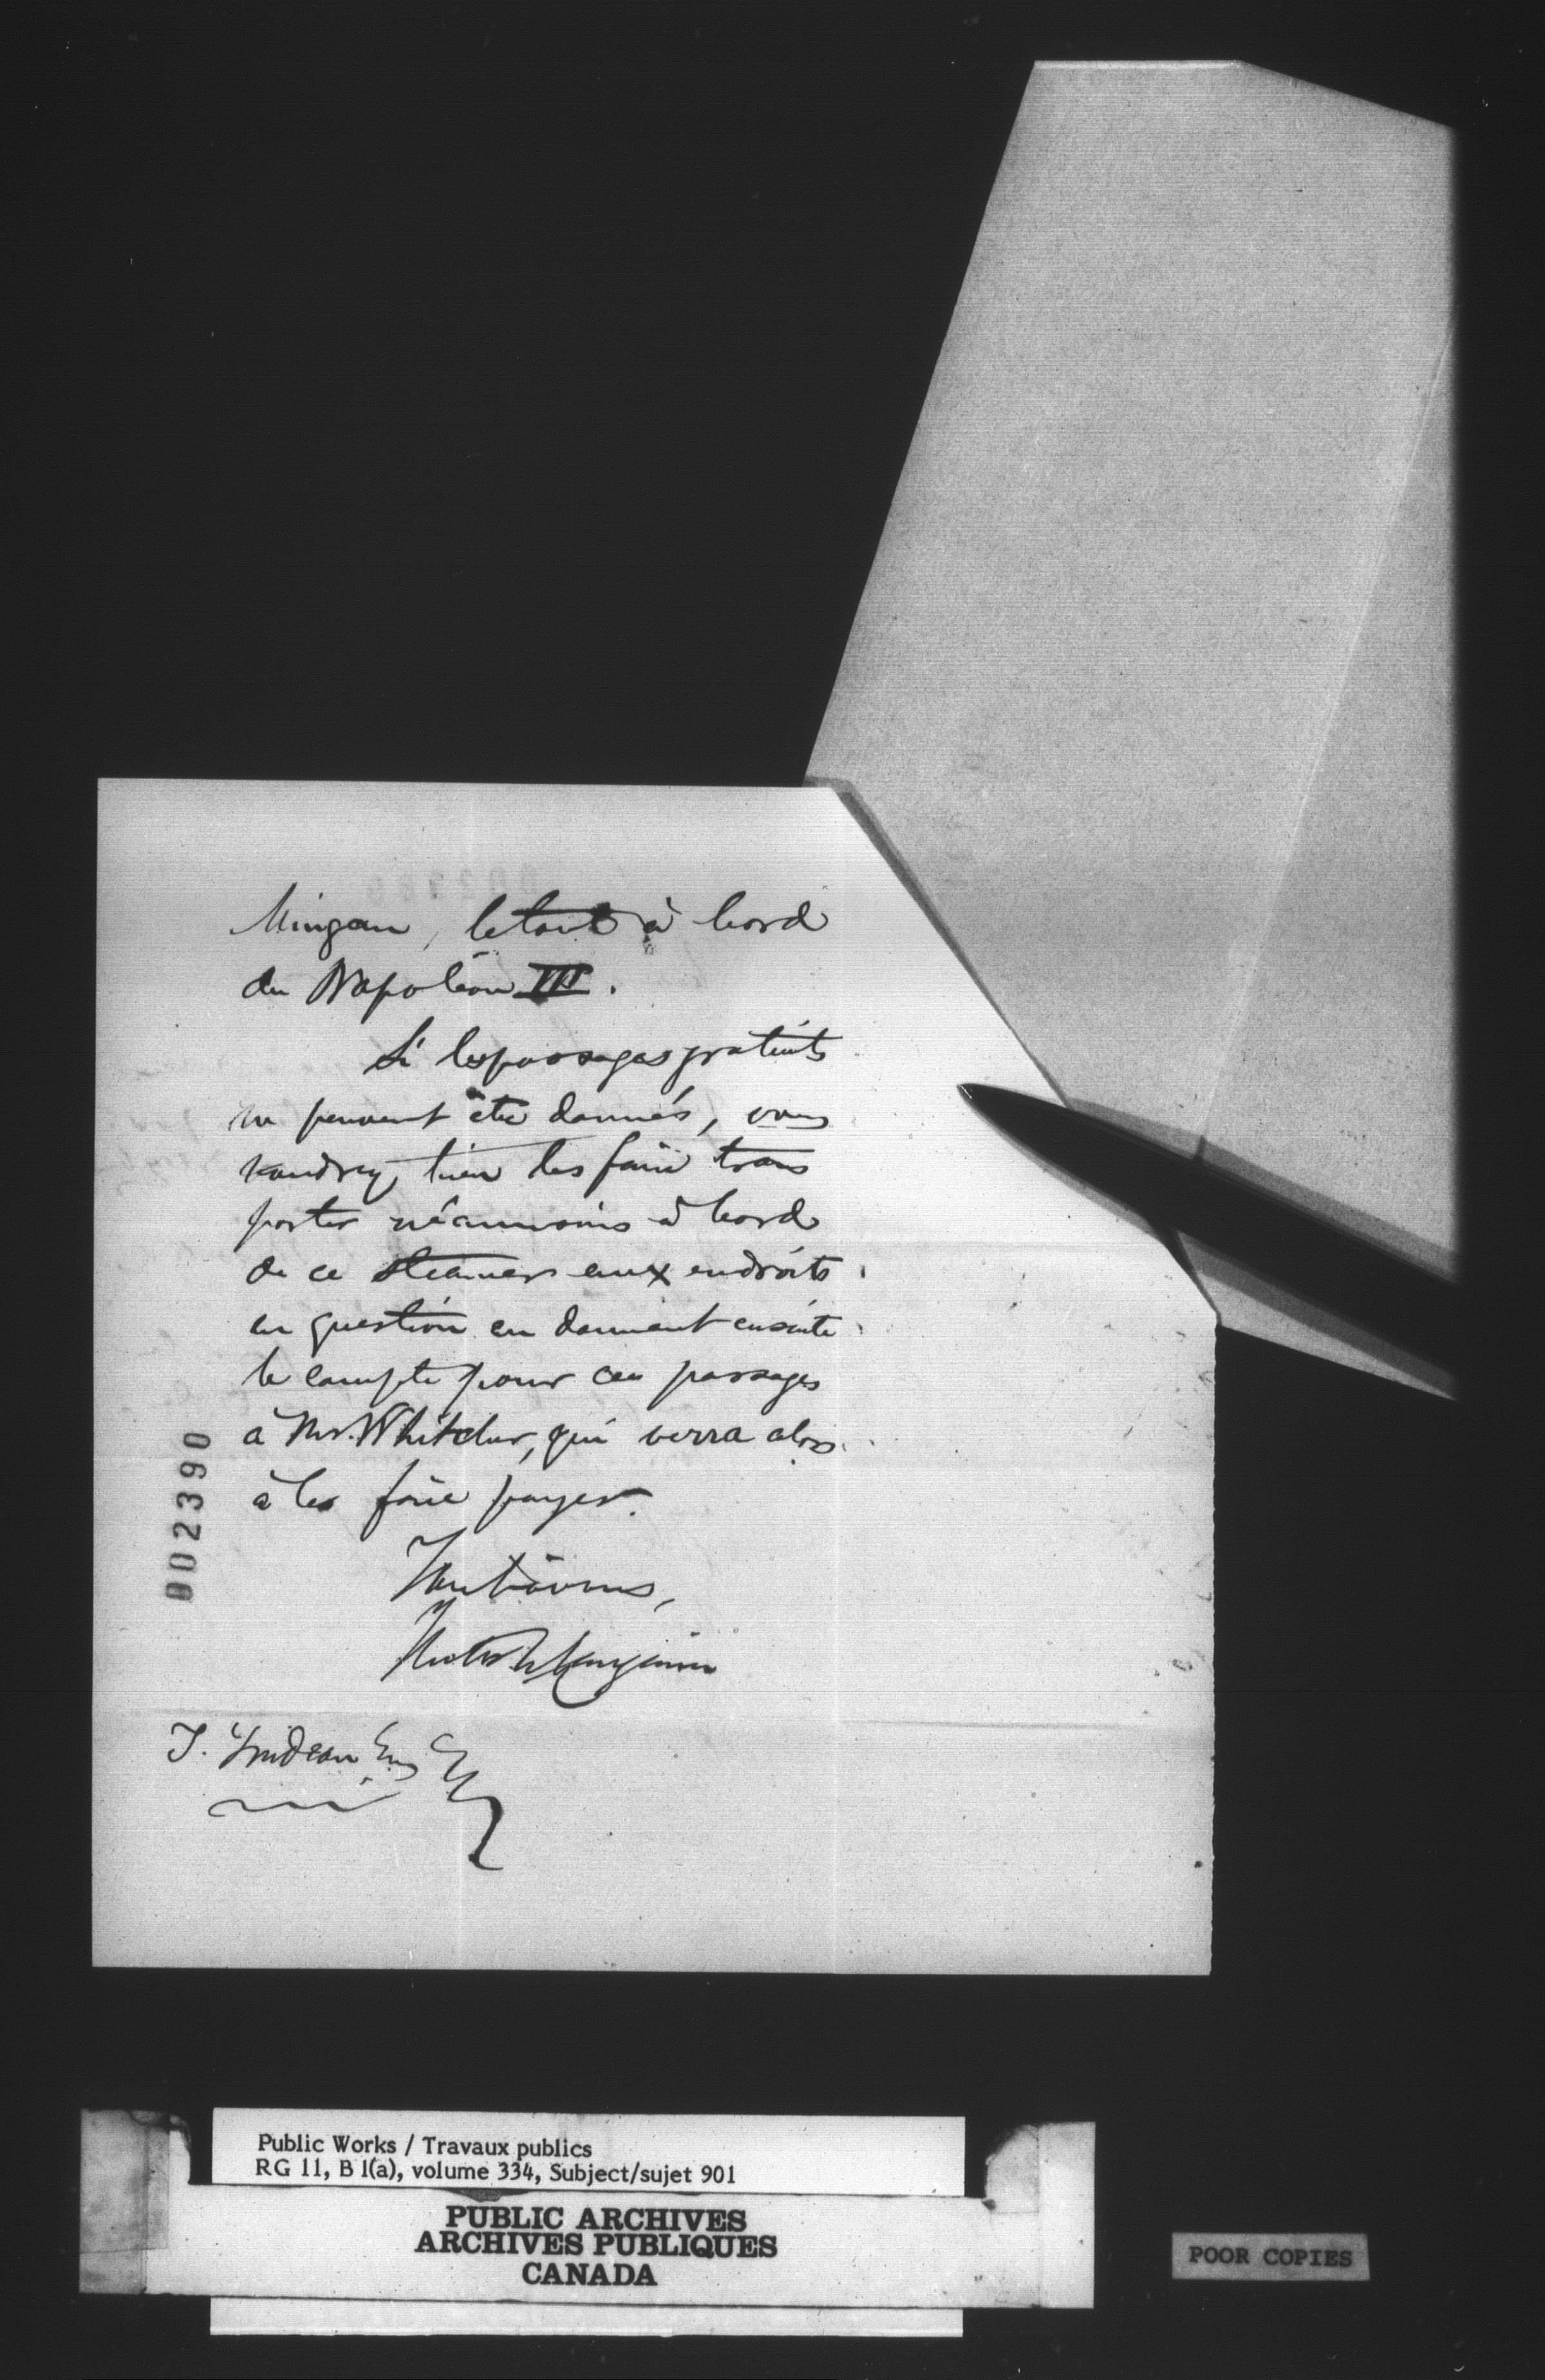 Mingan, le tout à bord
du Napoléon III.
Si les passages gratuits
ne peuvent être donnés, vous
voudrez bien les faire trans
porter néanmoins à bord
de ce steamer aux endroits
en question en donnant ensuite
le compte pour ces passages
à Mr. Whitcher, qui verra alors
à les faire payer.
Tout à vous,
Hector L. Langevin
T. Trudeau
002390
Public Works / Travaux publics
RG 11, B 1(a), volume 334, Subject/sujet 901
PUBLIC ARCHIVES
ARCHIVES PUBLIQUES
CANADA
POOR COPIES